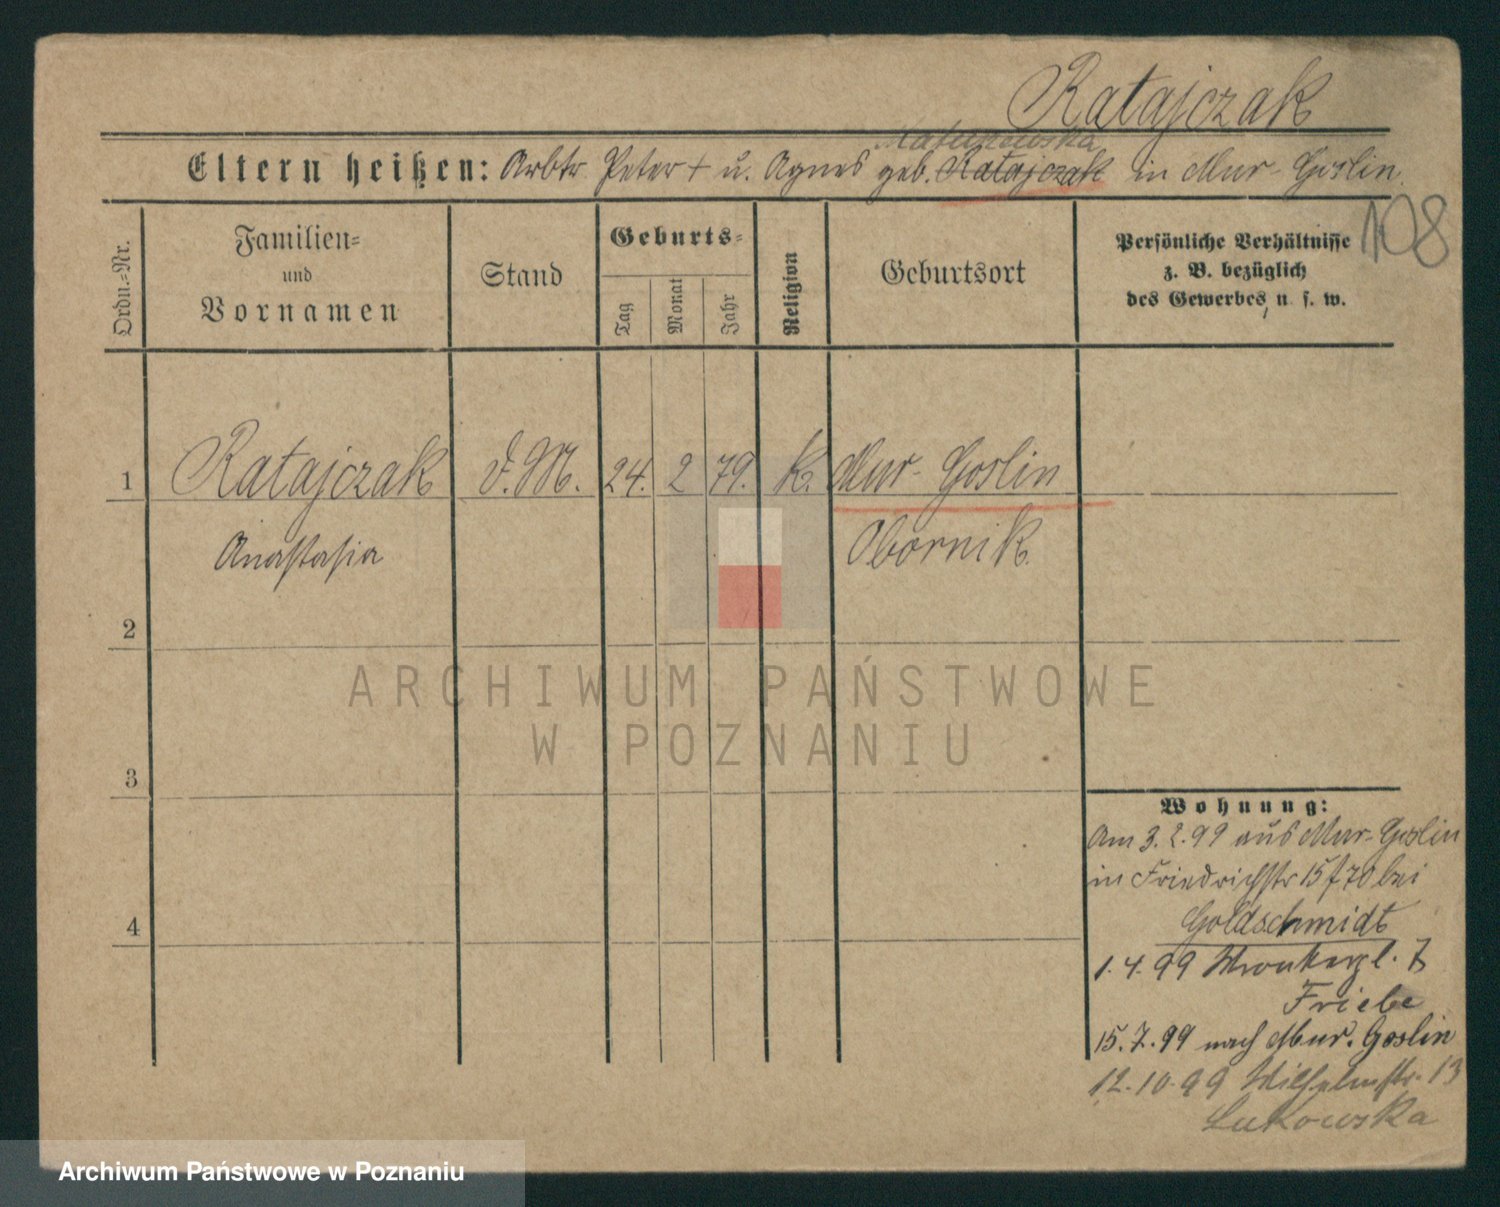 Ratajczak
Eltern heißen: Arbtr Peter + u. Agnes geb. Ratajczak in Mur-Goslin
108
Ordn.-Nr.
Familien-
und
Vornamen
Stand
Geburts-
Tag
Monat
Jahr
Religion
Geburtsort
Persönliche Verhältnisse
z. B. bezüglich
des Gewerbes, u. s. w.
1 Ratajczak d. M. 24. 2 79. k. Mur-Goslin
Anastasia Obornik
2
ARCHIWUM PAŃSTWOWE
W POZNANIU
3
Wohnung:
Am 3.2.99 aus Mur-Goslin
in Friedrichstr 15 f 70 bei
4
Goldschmidt
1.4.99 Wronkerpl. 7
Friebe
15.7.99 nach Mur. Goslin
12.10.99 Wilhelmstr. 13
Lukowska
Archiwum Państwowe w Poznaniu